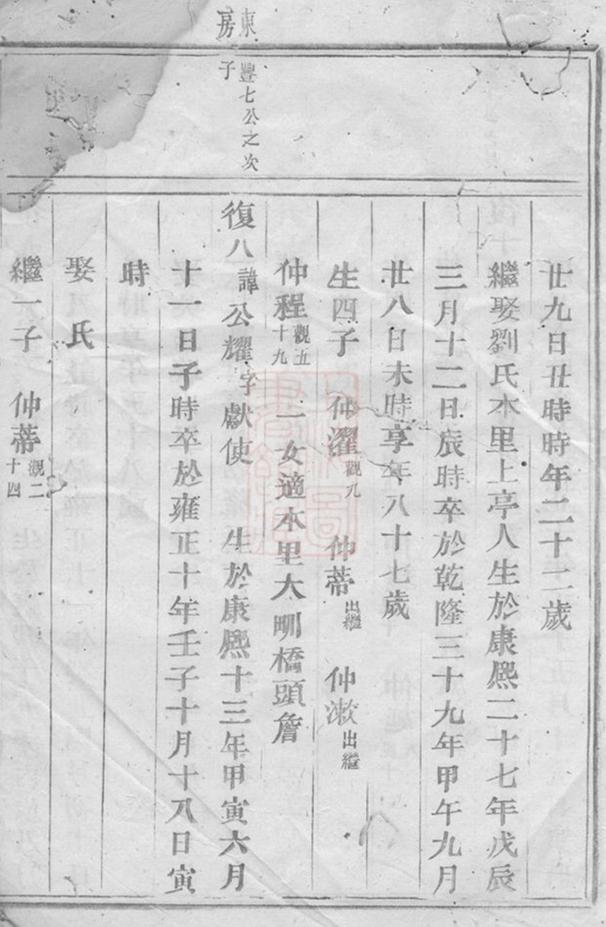 東房 豐七公之次子
廿九日丑時時年二十二歲
繼娶劉氏本里上亭人生於康熙二十七年戊辰
三月十二日辰時卒於乾隆三十九年甲午九月
廿八日未時享年八十七歲
生四子 仲濯觀九 仲蒂出繼 仲漱出繼
仲程觀五十九 二女適本里大㘭橋頭詹
復八諱公耀字獻使 生於康熙十三年甲寅六月
十一日子時卒於雍正十年壬子十月十八日寅
時
娶氏
繼一子 仲蒂觀二十四